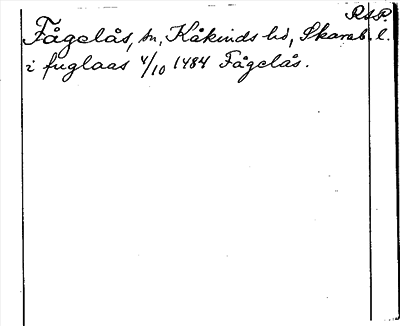 RAP.
Fågelås, sn, Kåkinds hd, Skarab. l.
i fuglaas 4/10 1484 Fågelås.